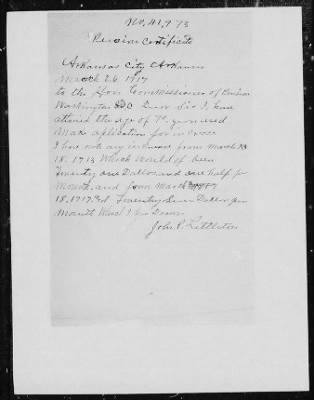 No. 41,973
Pension Certificate
Arkansas City Arkansas
March 26 1917
to the Hon Commissioner of
Washington D C Dear Sir I have
attained the age of 70 and
Make application for increase
I have not any increase from March
18. 1913 Which would of been
Twenty one Dollars and one half per
Month and from March
18. 1917. Twenty Seven Dollars per
Month Which I
John P. Littleton